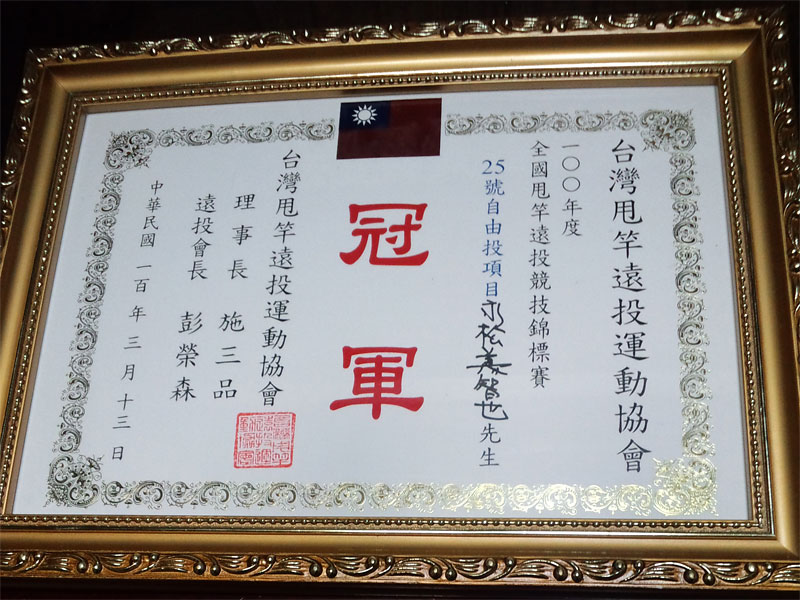 台灣甩竿遠投運動協會
一〇〇年度
全國甩竿遠投競技錦標賽
25號自由投項目 永松美智也 先生
冠軍
台灣甩竿遠投運動協會
理事長 施三品
遠投會長 彭榮森
中華民國 一百 年 三 月 十三 日